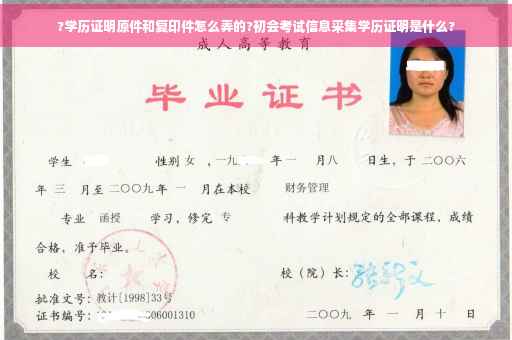 ?学历证明原件和复印件怎么弄的?初会考试信息采集学历证明是什么?
成人高等教育
毕业证书
学生 性别 女 ,一九 年一 月八 日生，于二〇〇六
年 三 月至二〇〇九年 一 月在本校 财务管理
专业 函授 学习，修完 专 科教学计划规定的全部课程，成绩
合格，准予毕业。
校 名： 校（院）长：
批准文号：教计[1998]33号
证书编号： 06001310 二〇〇九 年 一 月 十 日